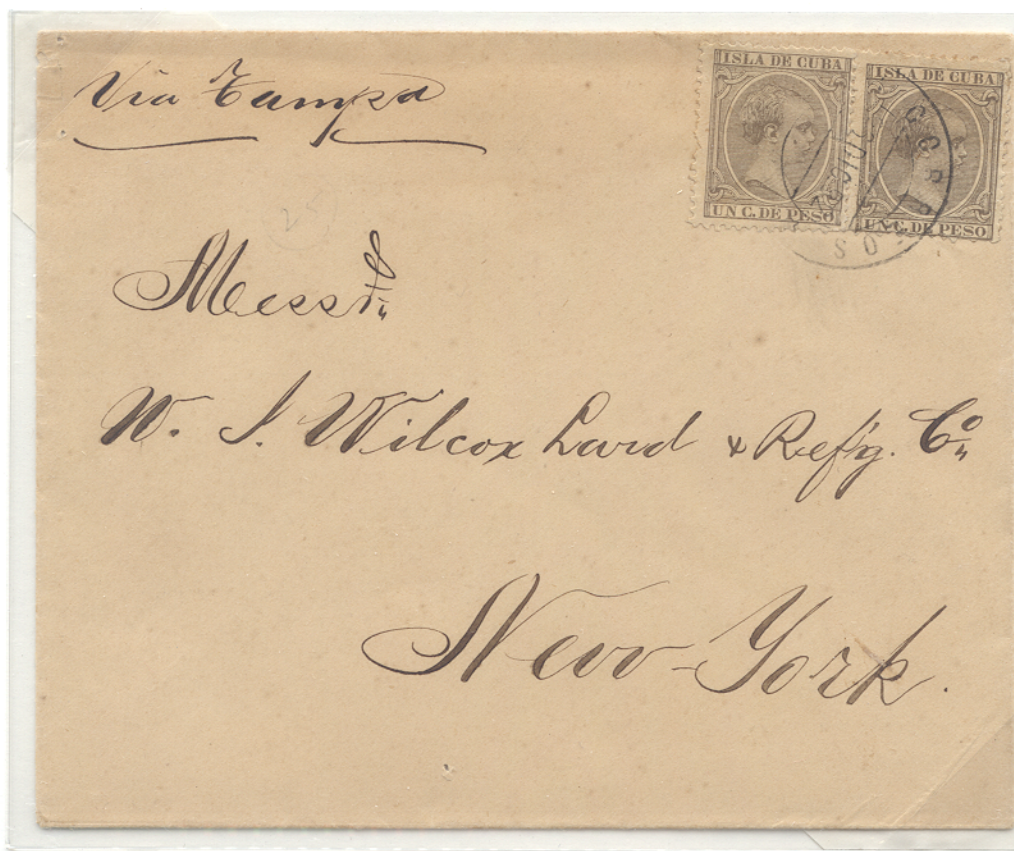 Via Tampa
ISLA DE CUBA
UN C. DE PESO
ISLA DE CUBA
UN C. DE PESO
Messrs
W. J. Wilcox Lard & Ref'g. Co
New-York.